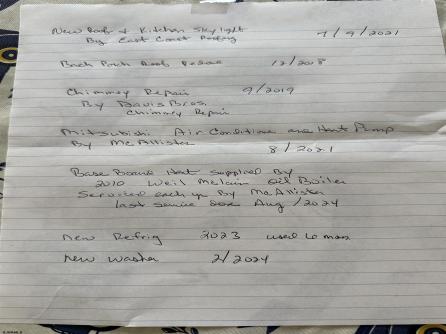 New Roof & Kitchen Skylight 7/9/2021
By East Coast Roofing
Back Porch Roof 12/2018
Chimney Repair 9/2019
By Davis Bros.
Chimney Repair
Mitsubishi Air Conditioner and Heat Pump
By McAllister 8/2021
Base Board Heat supplied By
2010 Weil Mclain Oil Boiler
Serviced each yr By McAllister
last service Aug/2024
New Refrig 2023 used 6 mos
New Washer 2/2024